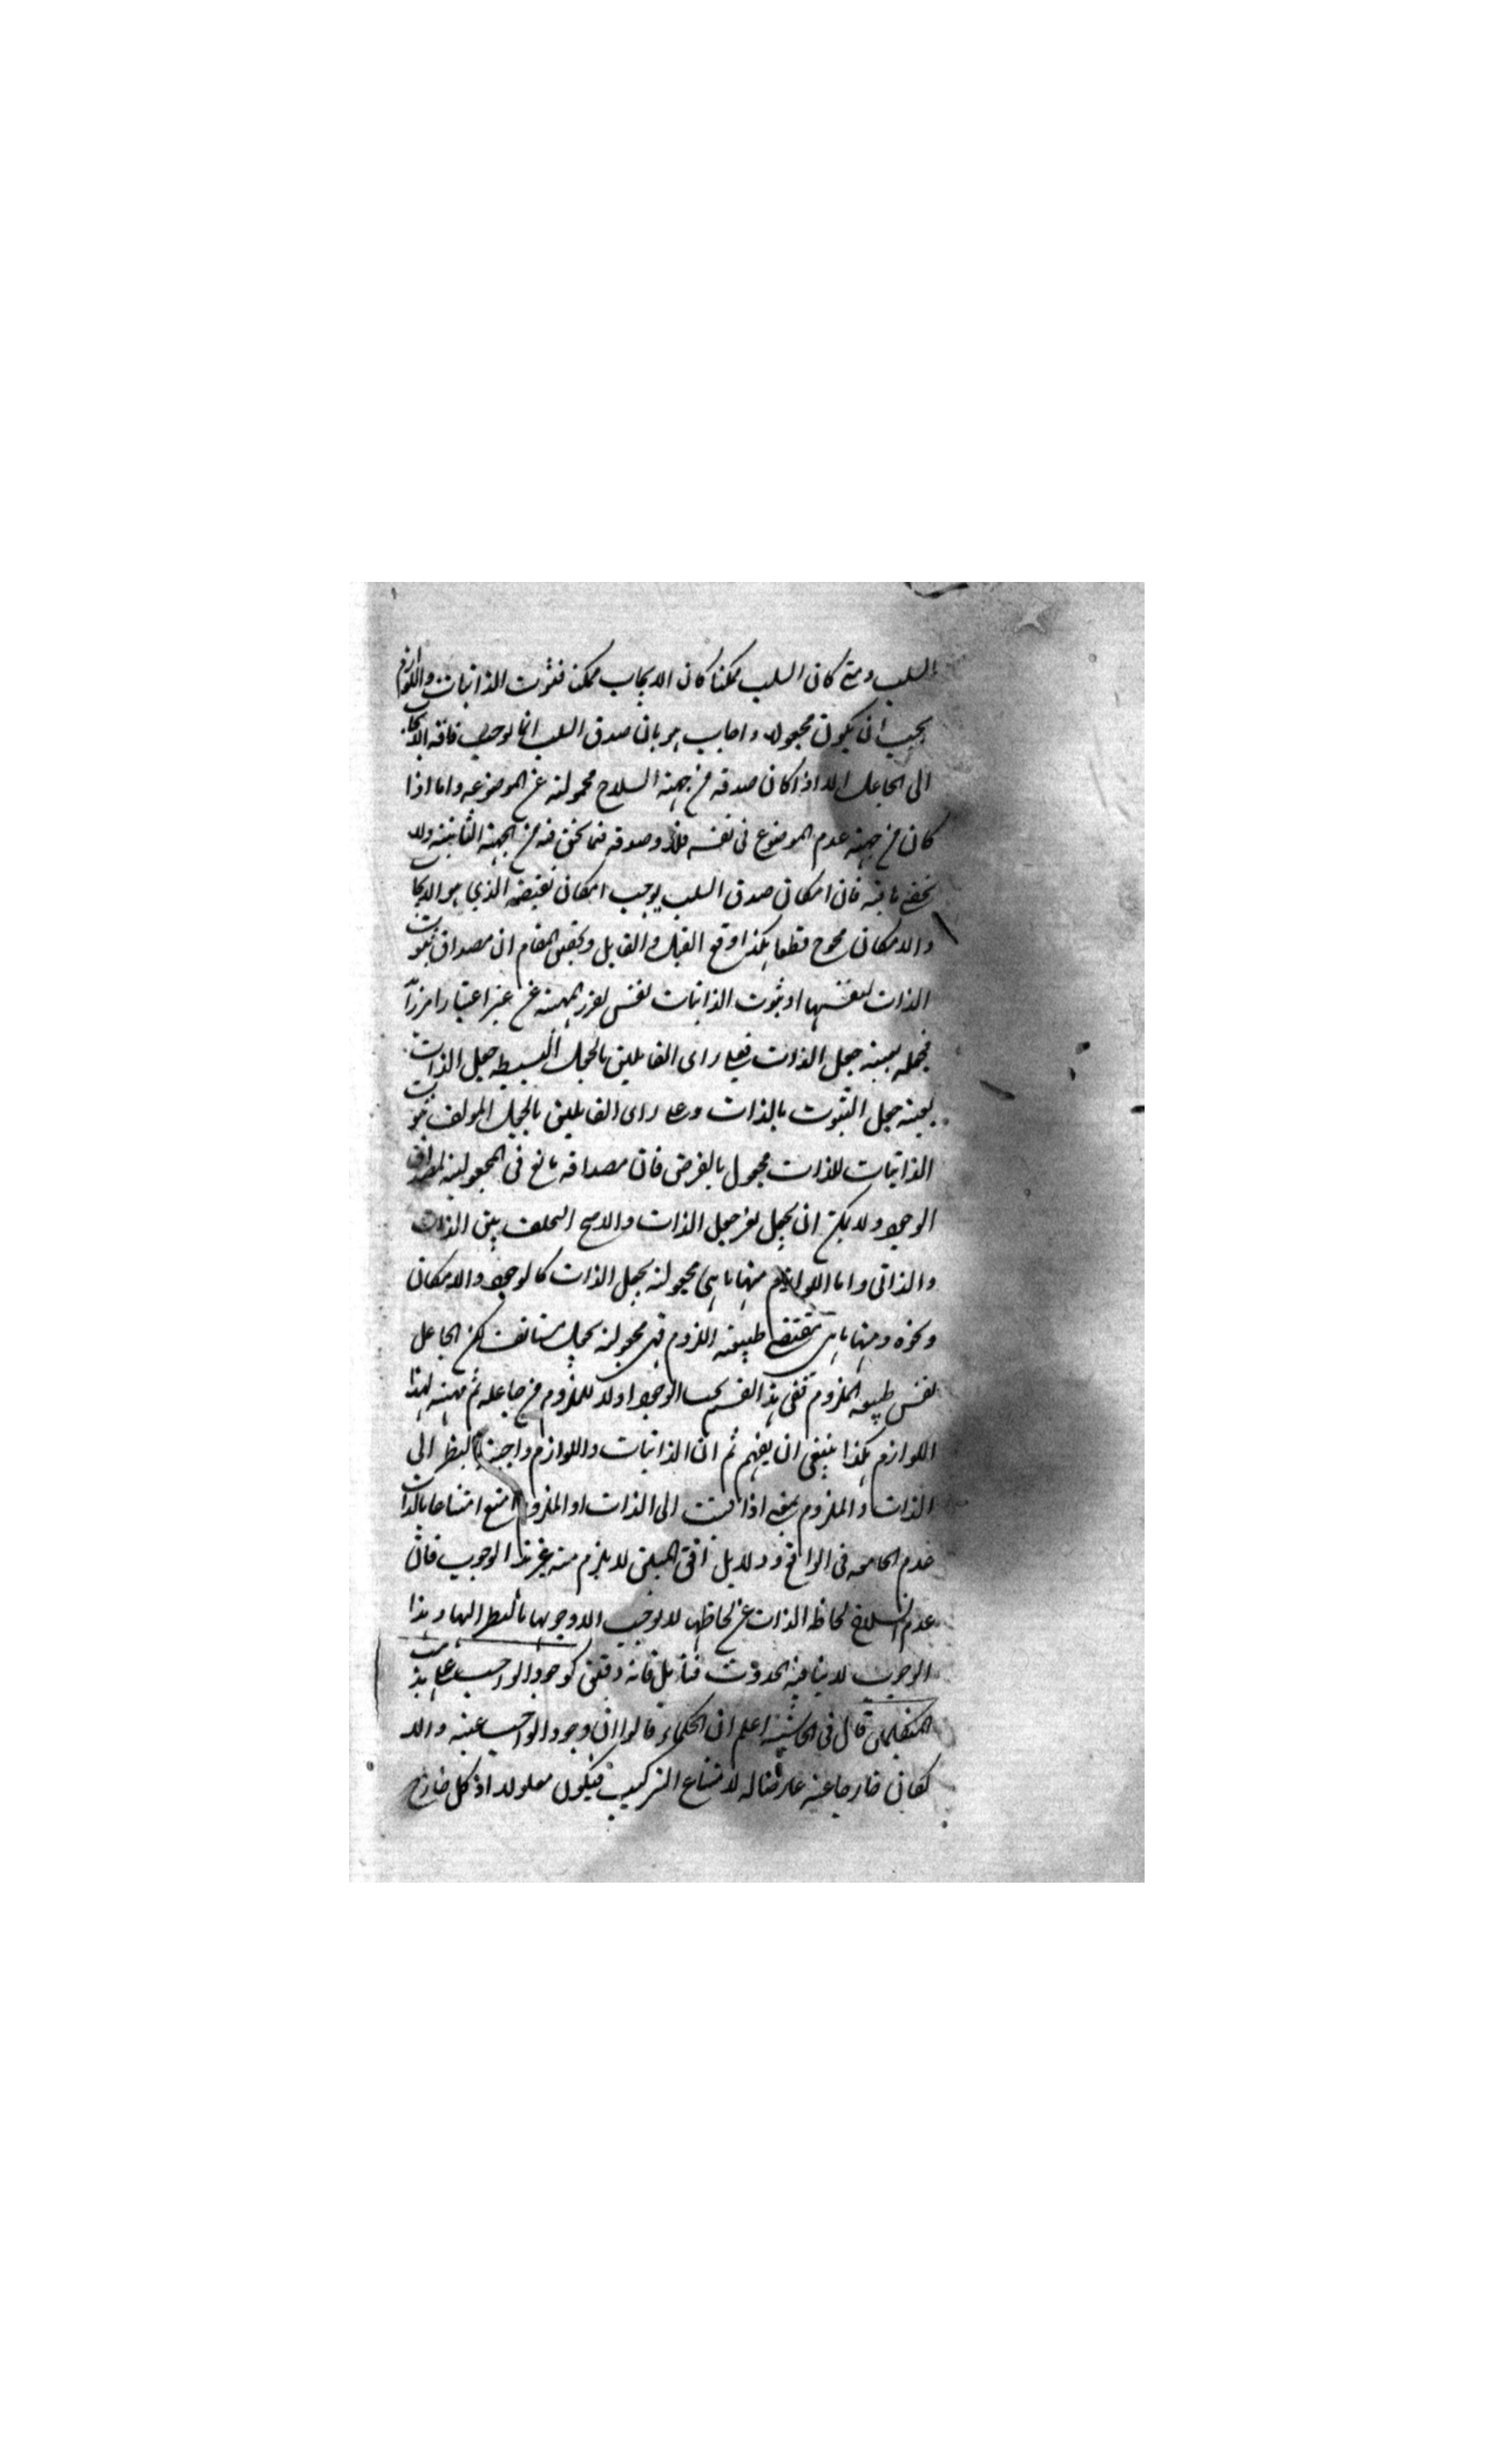 السلب ومتى كان السلب ممكنا كان الايجاب ممكنا فثبوت الذاتيات واللوازم
يجب ان يكون مجعولا واجاب بان صدق السلب انما يوجب فاقة الايجاب
الى الجاعل اذا كان صدقه من جهة انسلاخ محموله عن الموضوع واما اذا
كان من جهة عدم الموضوع في نفسه فلا وصدقه فيما نحن فيه من الجهة الثانية ولا
يخفى ما فيه فان امكان صدق السلب يوجب امكان نقيضه الذي هو الايجاب
والامكان محوج قطعا هكذا وقع القيل والقال وتحقيق المقام ان مصداق ثبوت
الذات لنفسها او ثبوت الذاتيات نفس تقرر المهية من غير اعتبار امر زائد
فجعله بعينه جعل الذات فعلى راى القائلين بالجعل البسيط جعل الذات
بعينه جعل الثبوت بالذات وعلى راى القائلين بالجعل المولف ثبوت
الذاتيات للذات مجعول بالعرض فان مصداقه تابع في المجعولية لمصداق
الوجود ولا يمكن ان يجعل بغير جعل الذات والا صح التخلف بين الذات
والذاتي واما اللوازم منها ما هي مجعولة بجعل الذات كالوجود والامكان
ونحوه ومنها ما هي تقتضيه طبيعة الملزوم فهي مجعولة بجعل مستانف لكن الجاعل
نفس طبيعة الملزوم ففي هذا القسم الوجود اولا للملزوم من جاعله ثم مهية لهذا
اللوازم هكذا ينبغي ان يفهم ثم ان الذاتيات واللوازم واجبة بالنظر الى
الذات والملزوم بمعنى اذا قيست الى الذات او الملزوم امتنع امتناعا بالذات
عدم الجامعة في الواقع لا يلزم منه غير هذا الوجوب فان
عدم انسلاخ لحاظ الذات عن لحاظها لا يوجب الا وجوبها بالنظر اليها وهذا
الوجوب لا ينافيه الحدوث فتامل فانه دقيق كوجود الواجب على مذهب
المتكلمين قال في الحاشية اعلم ان الحكماء قالوا ان وجود الواجب عينه والا
لكان خارجا عنه عارضا له لامتناع التركيب فيكون معلولا اذ كل خارج